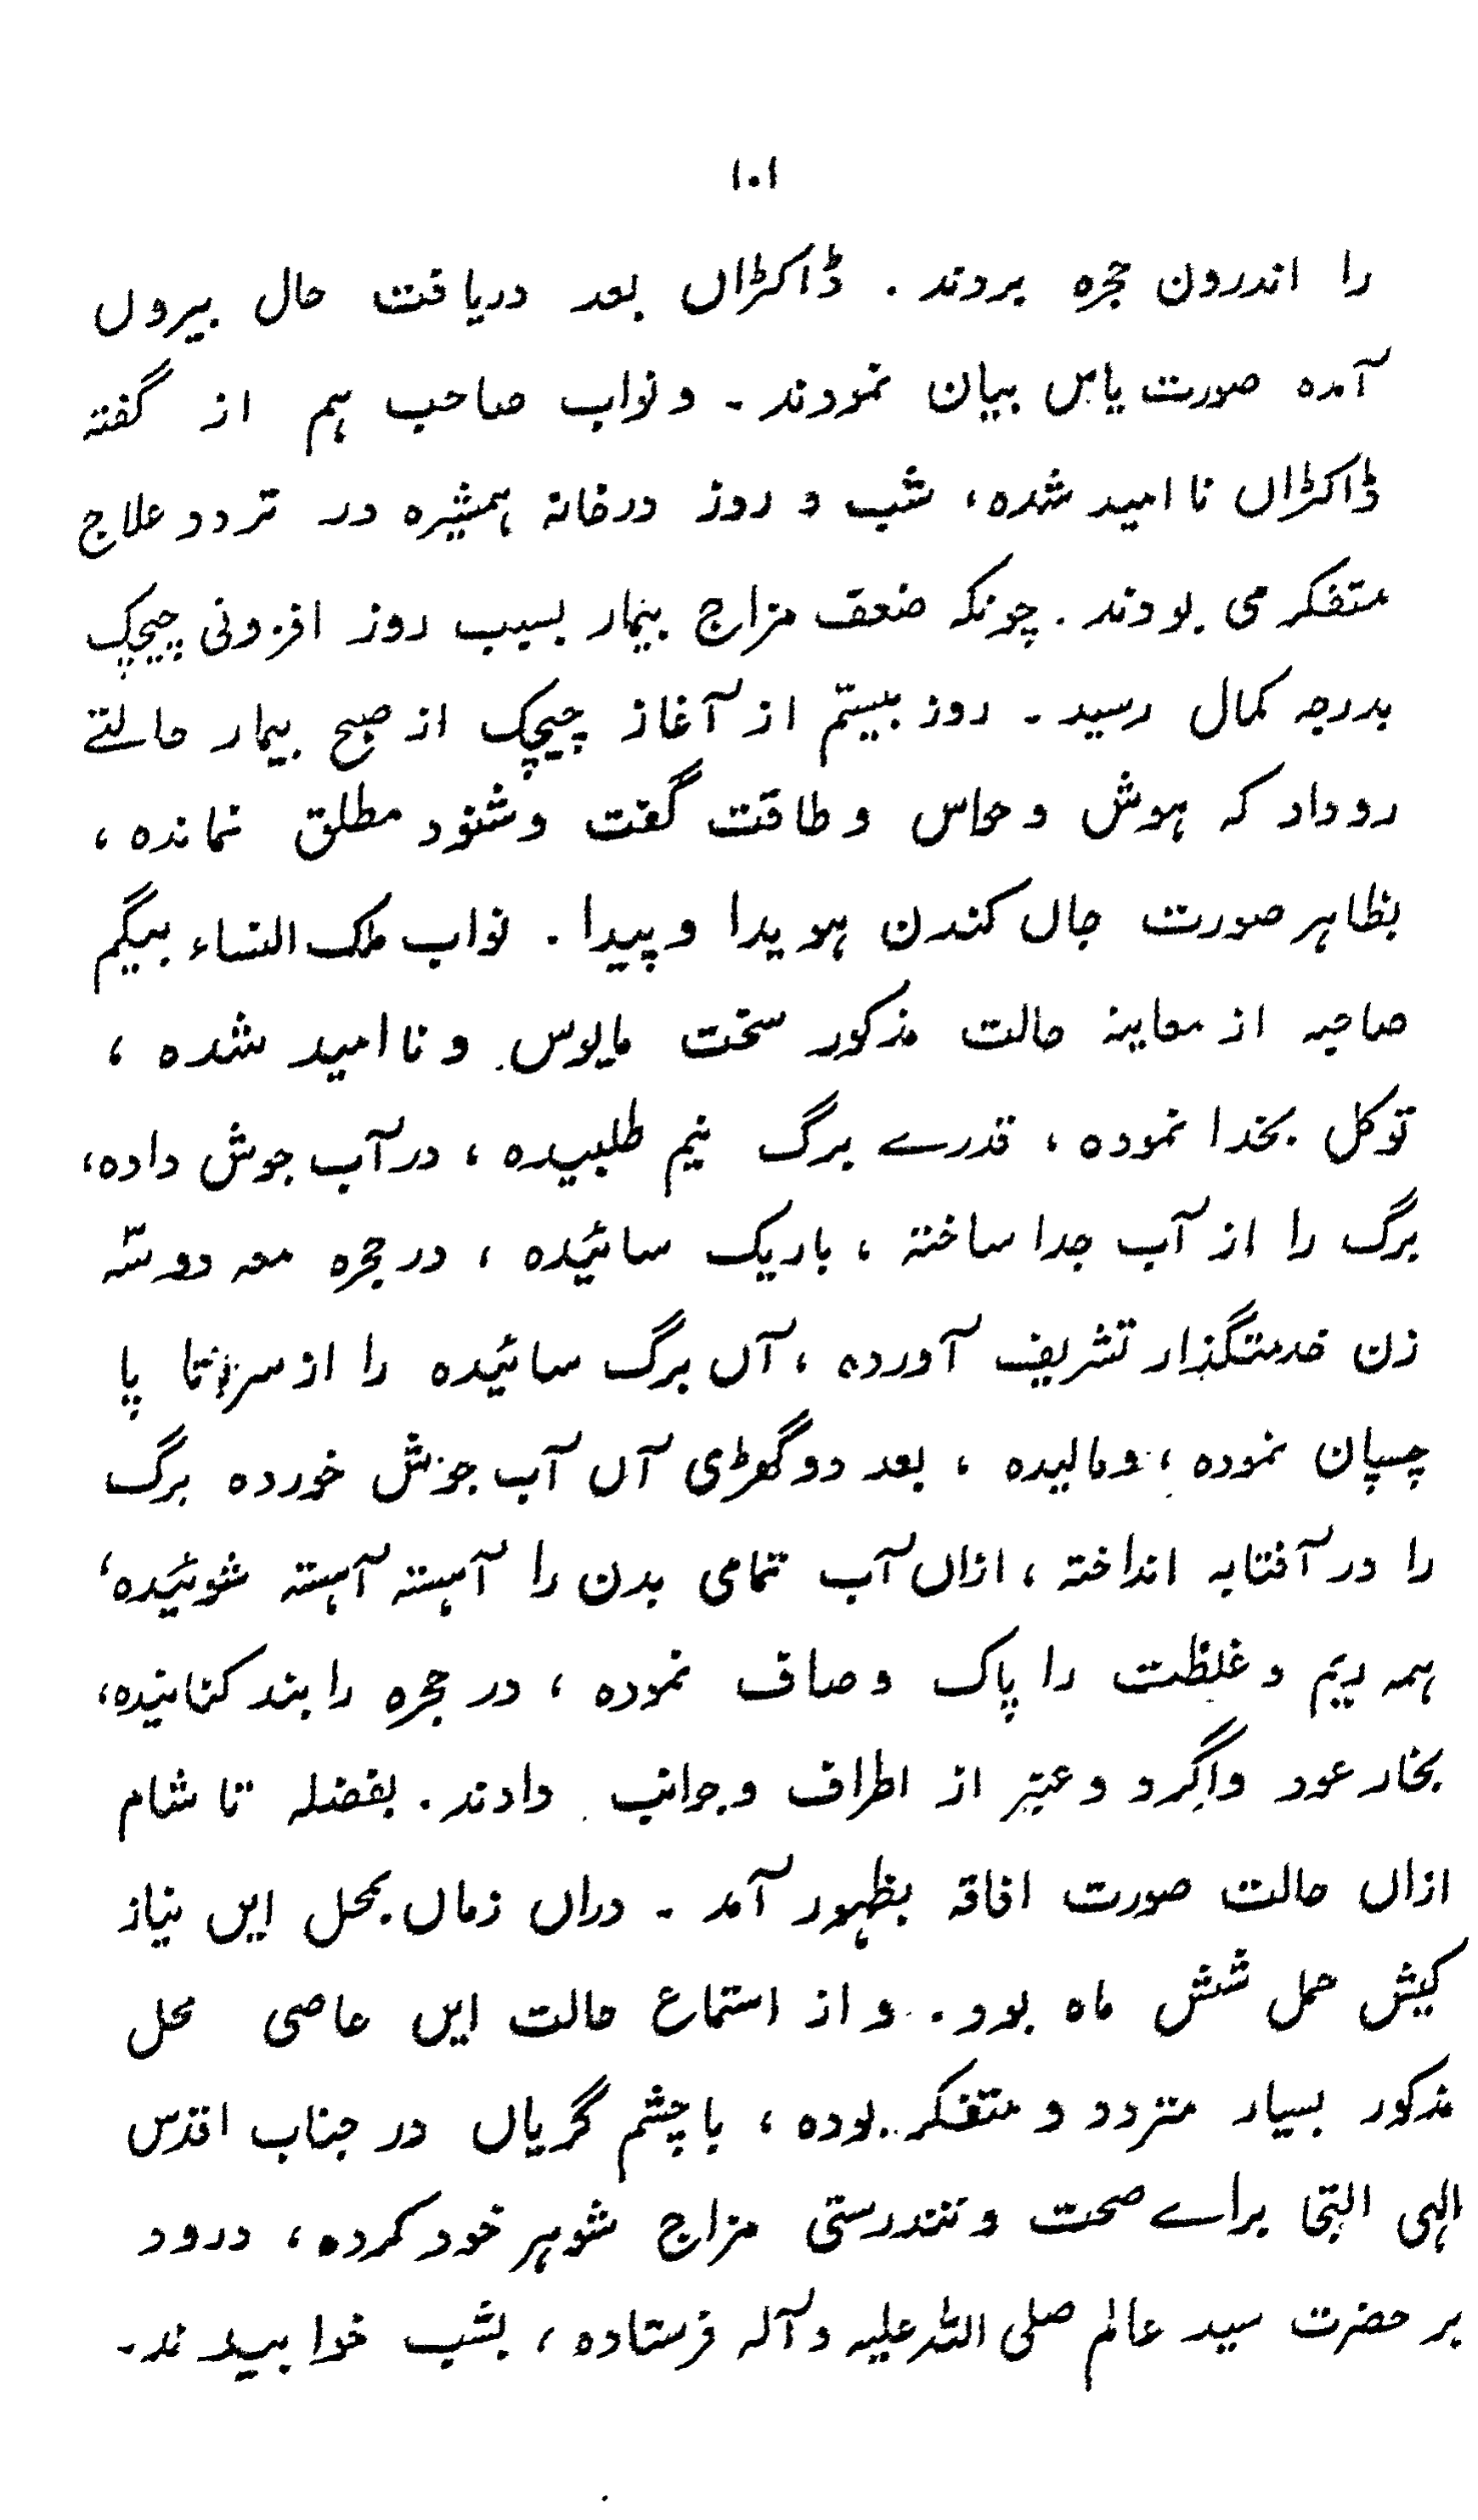 ۱۰۱
را اندرون حجره بردند. ڈاکٹراں بعد دریافت حال بیروں
آمده صورت یاس بیان نمودند۔ و نواب صاحب ہم از گفتہ
ڈاکٹراں نا امید شده، شب و روز در خانہ ہمشیره در تردد علاج
متفکر می بودند. چونکہ ضعف مزاج بیمار بسبب روز افزونی چیچک
بدرجہ کمال رسید۔ روز بیستم از آغاز چیچک از صبح بیمار حالتے
رو داد کہ ہوش و حواس و طاقت گفت و شنود مطلق نمانده،
بظاہر صورت جاں کندن ہویدا و پیدا. نواب ملک النساء بیگم
صاحبہ از معاینہ حالت مذکور سخت مایوس و نا امید شده،
توکل بخدا نموده، قدرے برگ نیم طلبیده، در آب جوش داده،
برگ را از آب جدا ساختہ، باریک سائیده، در حجره معہ دو سہ
زن خدمتگذار تشریف آورده، آں برگ سائیده را از سر تا پا
چسپان نموده، و مالیده، بعد دو گھڑی آں آب جوش خورده برگ
را در آفتابہ انداختہ، ازاں آب تمامی بدن را آہستہ آہستہ شوئیده،
ہمہ ریم و غلظت را پاک و صاف نموده، در حجره را بند کنانیده،
بخار عود و اگرد و عنبر از اطراف و جوانب دادند. بفضلہ تا شام
ازاں حالت صورت افاقہ بظہور آمد۔ دراں زماں بمحل ایں نیاز
کیش حمل شش ماه بود. و از استماع حالت ایں عاصی محل
مذکور بسیار متردد و متفکر بوده، با چشم گریاں در جناب اقدس
الٰہی التجا براے صحت و تندرستی مزاج شوہر خود کرده، درود
بر حضرت سید عالم صلی اللہ علیہ و آلہ فرستاده، بشب خوابیدند۔